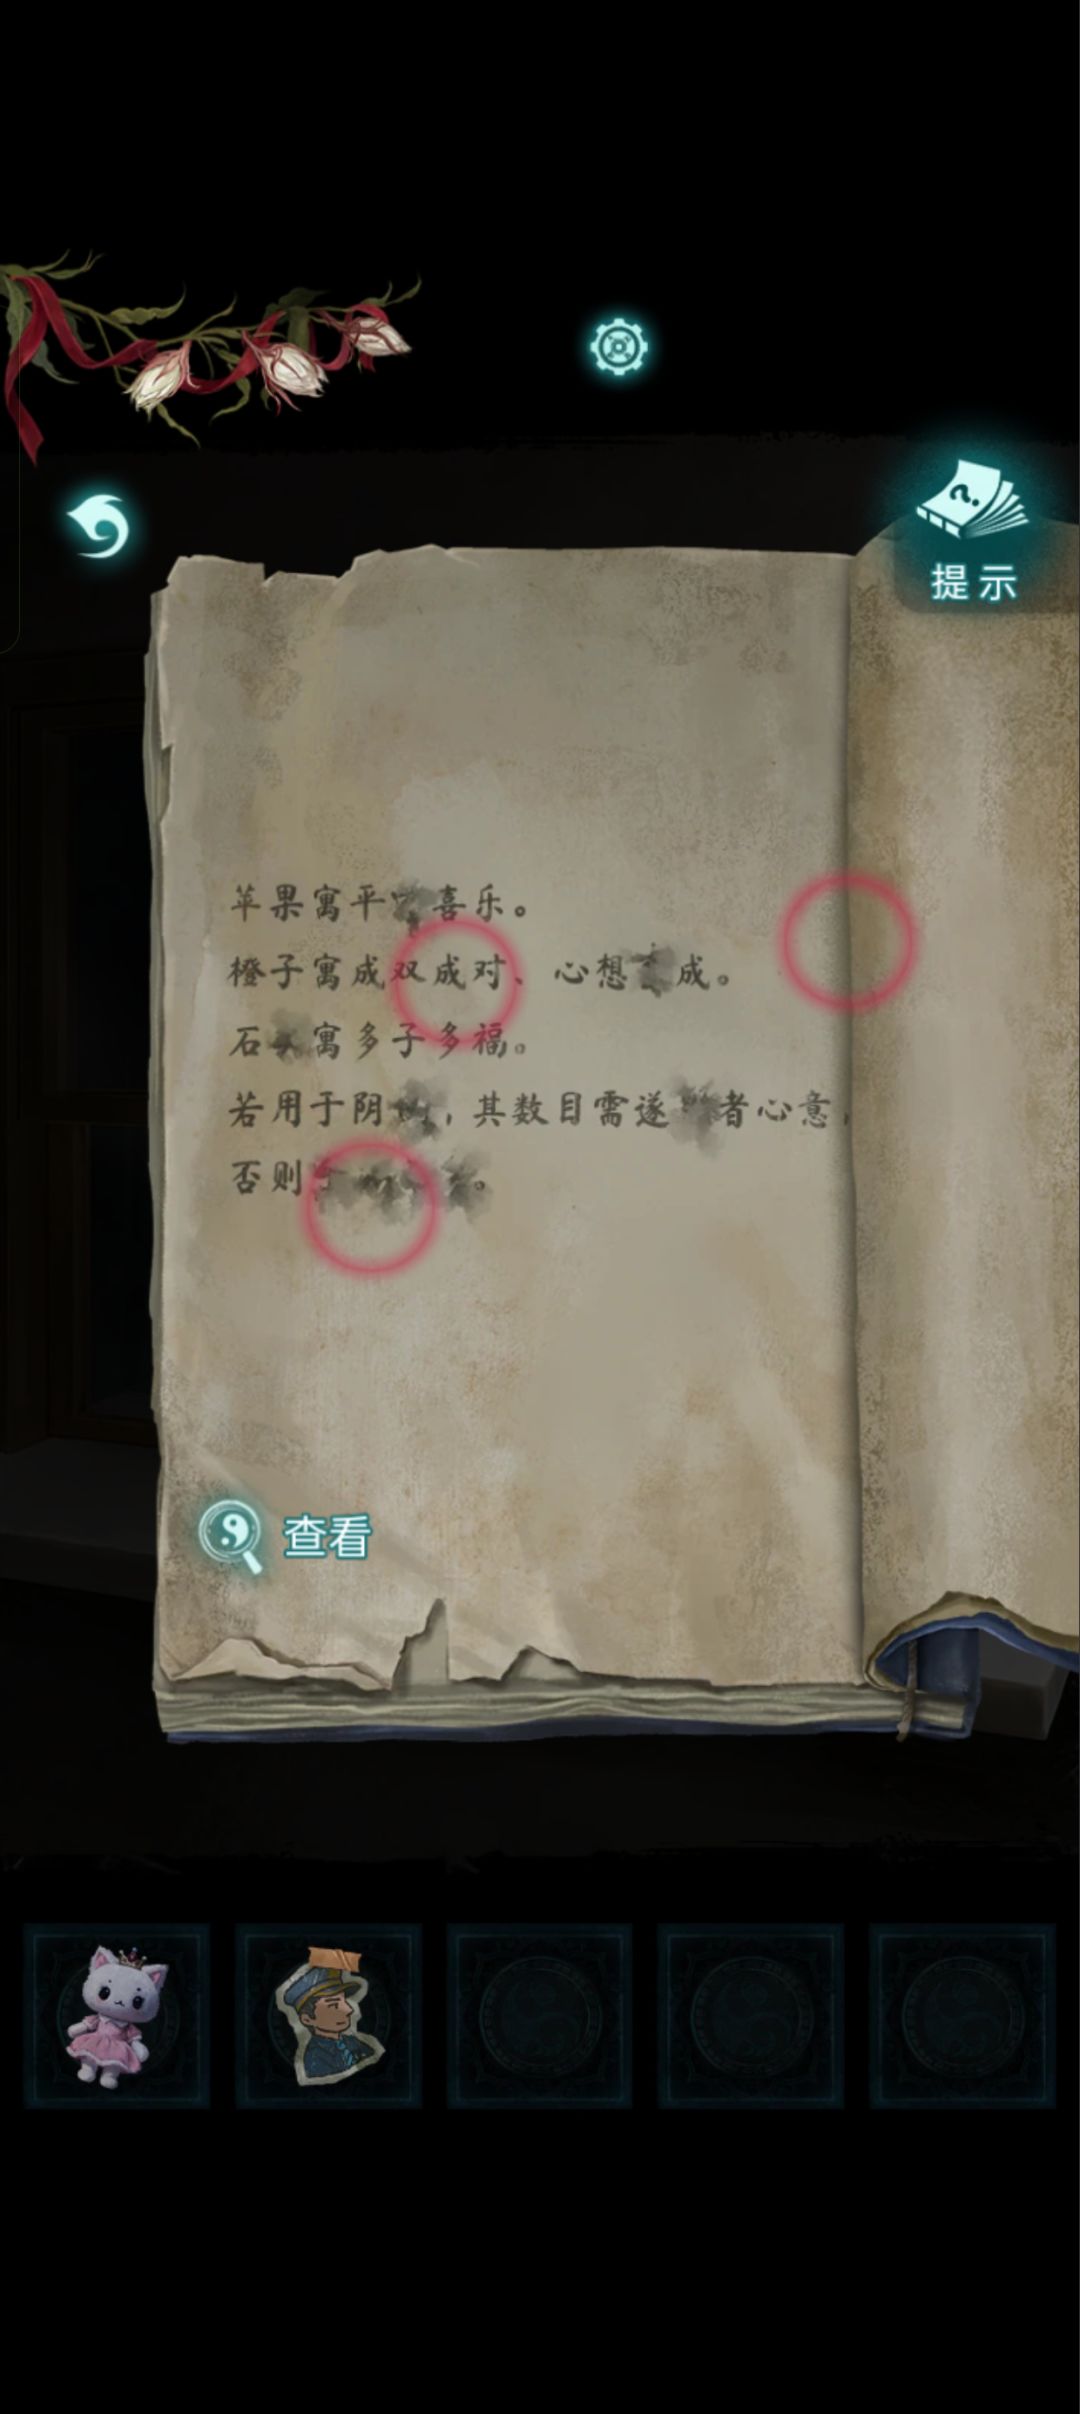 提示
苹果寓平喜乐。
橙子寓成双成对、心想成。
石寓多子多福。
若用于阴,其数目需遂者心意,
否则。
查看